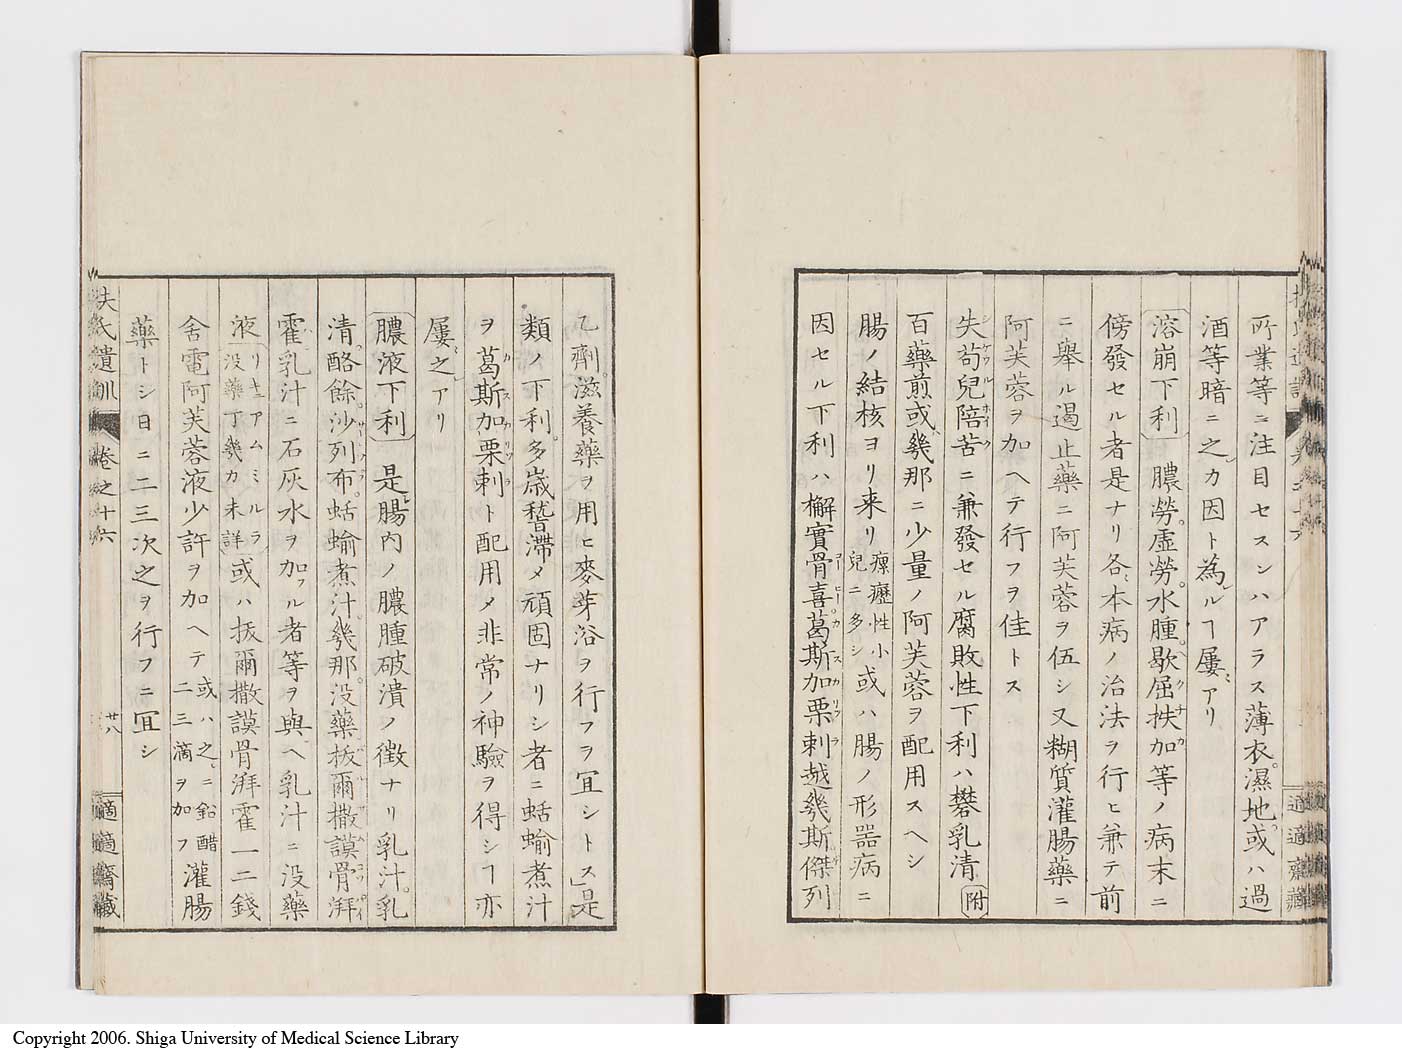 所業等ニ注目セスンハアラス薄衣。濕地。或ハ過
酒等暗ニ之カ因ト為ルヿ屢アリ
溶崩下利 膿癆。虛勞。水腫。歇屈扶加等ノ病末ニ
傍發セル者是ナリ各本病ノ治法ヲ行ヒ兼テ前
ニ舉ル遏止藥ニ阿芙蓉ヲ伍シ又糊質灌腸藥ニ
阿芙蓉ヲ加ヘテ行フヲ佳トス
失苟兒陪苦ニ兼發セル腐敗性下利ハ礬乳清 附
百藥煎或幾那ニ少量ノ阿芙蓉ヲ配用スヘシ
腸ノ結核ヨリ来リ瘰癧性小兒ニ多シ或ハ腸ノ形器病ニ
因セル下利ハ檞實骨喜葛斯加栗剌越幾斯傑列
乙劑。滋養藥ヲ用ヒ麥芽浴ヲ行フヲ冝シトス」是
類ノ下利。多歳稽滯メ頑固ナリシ者ニ蛞蝓煮汁
ヲ葛斯加栗剌ト配用メ非常ノ神驗ヲ得シヿ亦
屢之アリ
膿液下利 是腸内ノ膿腫破潰ノ徴ナリ乳汁。乳
清。酪餘。沙列布。蛞蝓煮汁。幾那。没藥。拔爾撒謨骨湃
霍。乳汁ニ石灰水ヲ加フル者等ヲ與ヘ乳汁ニ没藥
液 リキュアムミルラ没藥丁幾カ未詳 或ハ拔爾撒謨骨湃霍一二錢
舍電阿芙蓉液少許ヲ加ヘテ或ハ之ニ鉛醋二三滴ヲ加フ灌腸
藥トシ日ニ二三次之ヲ行フニ冝シ
扶氏遺訓 卷之十六 廿八 適適齋藏
Copyright 2006. Shiga University of Medical Science Library